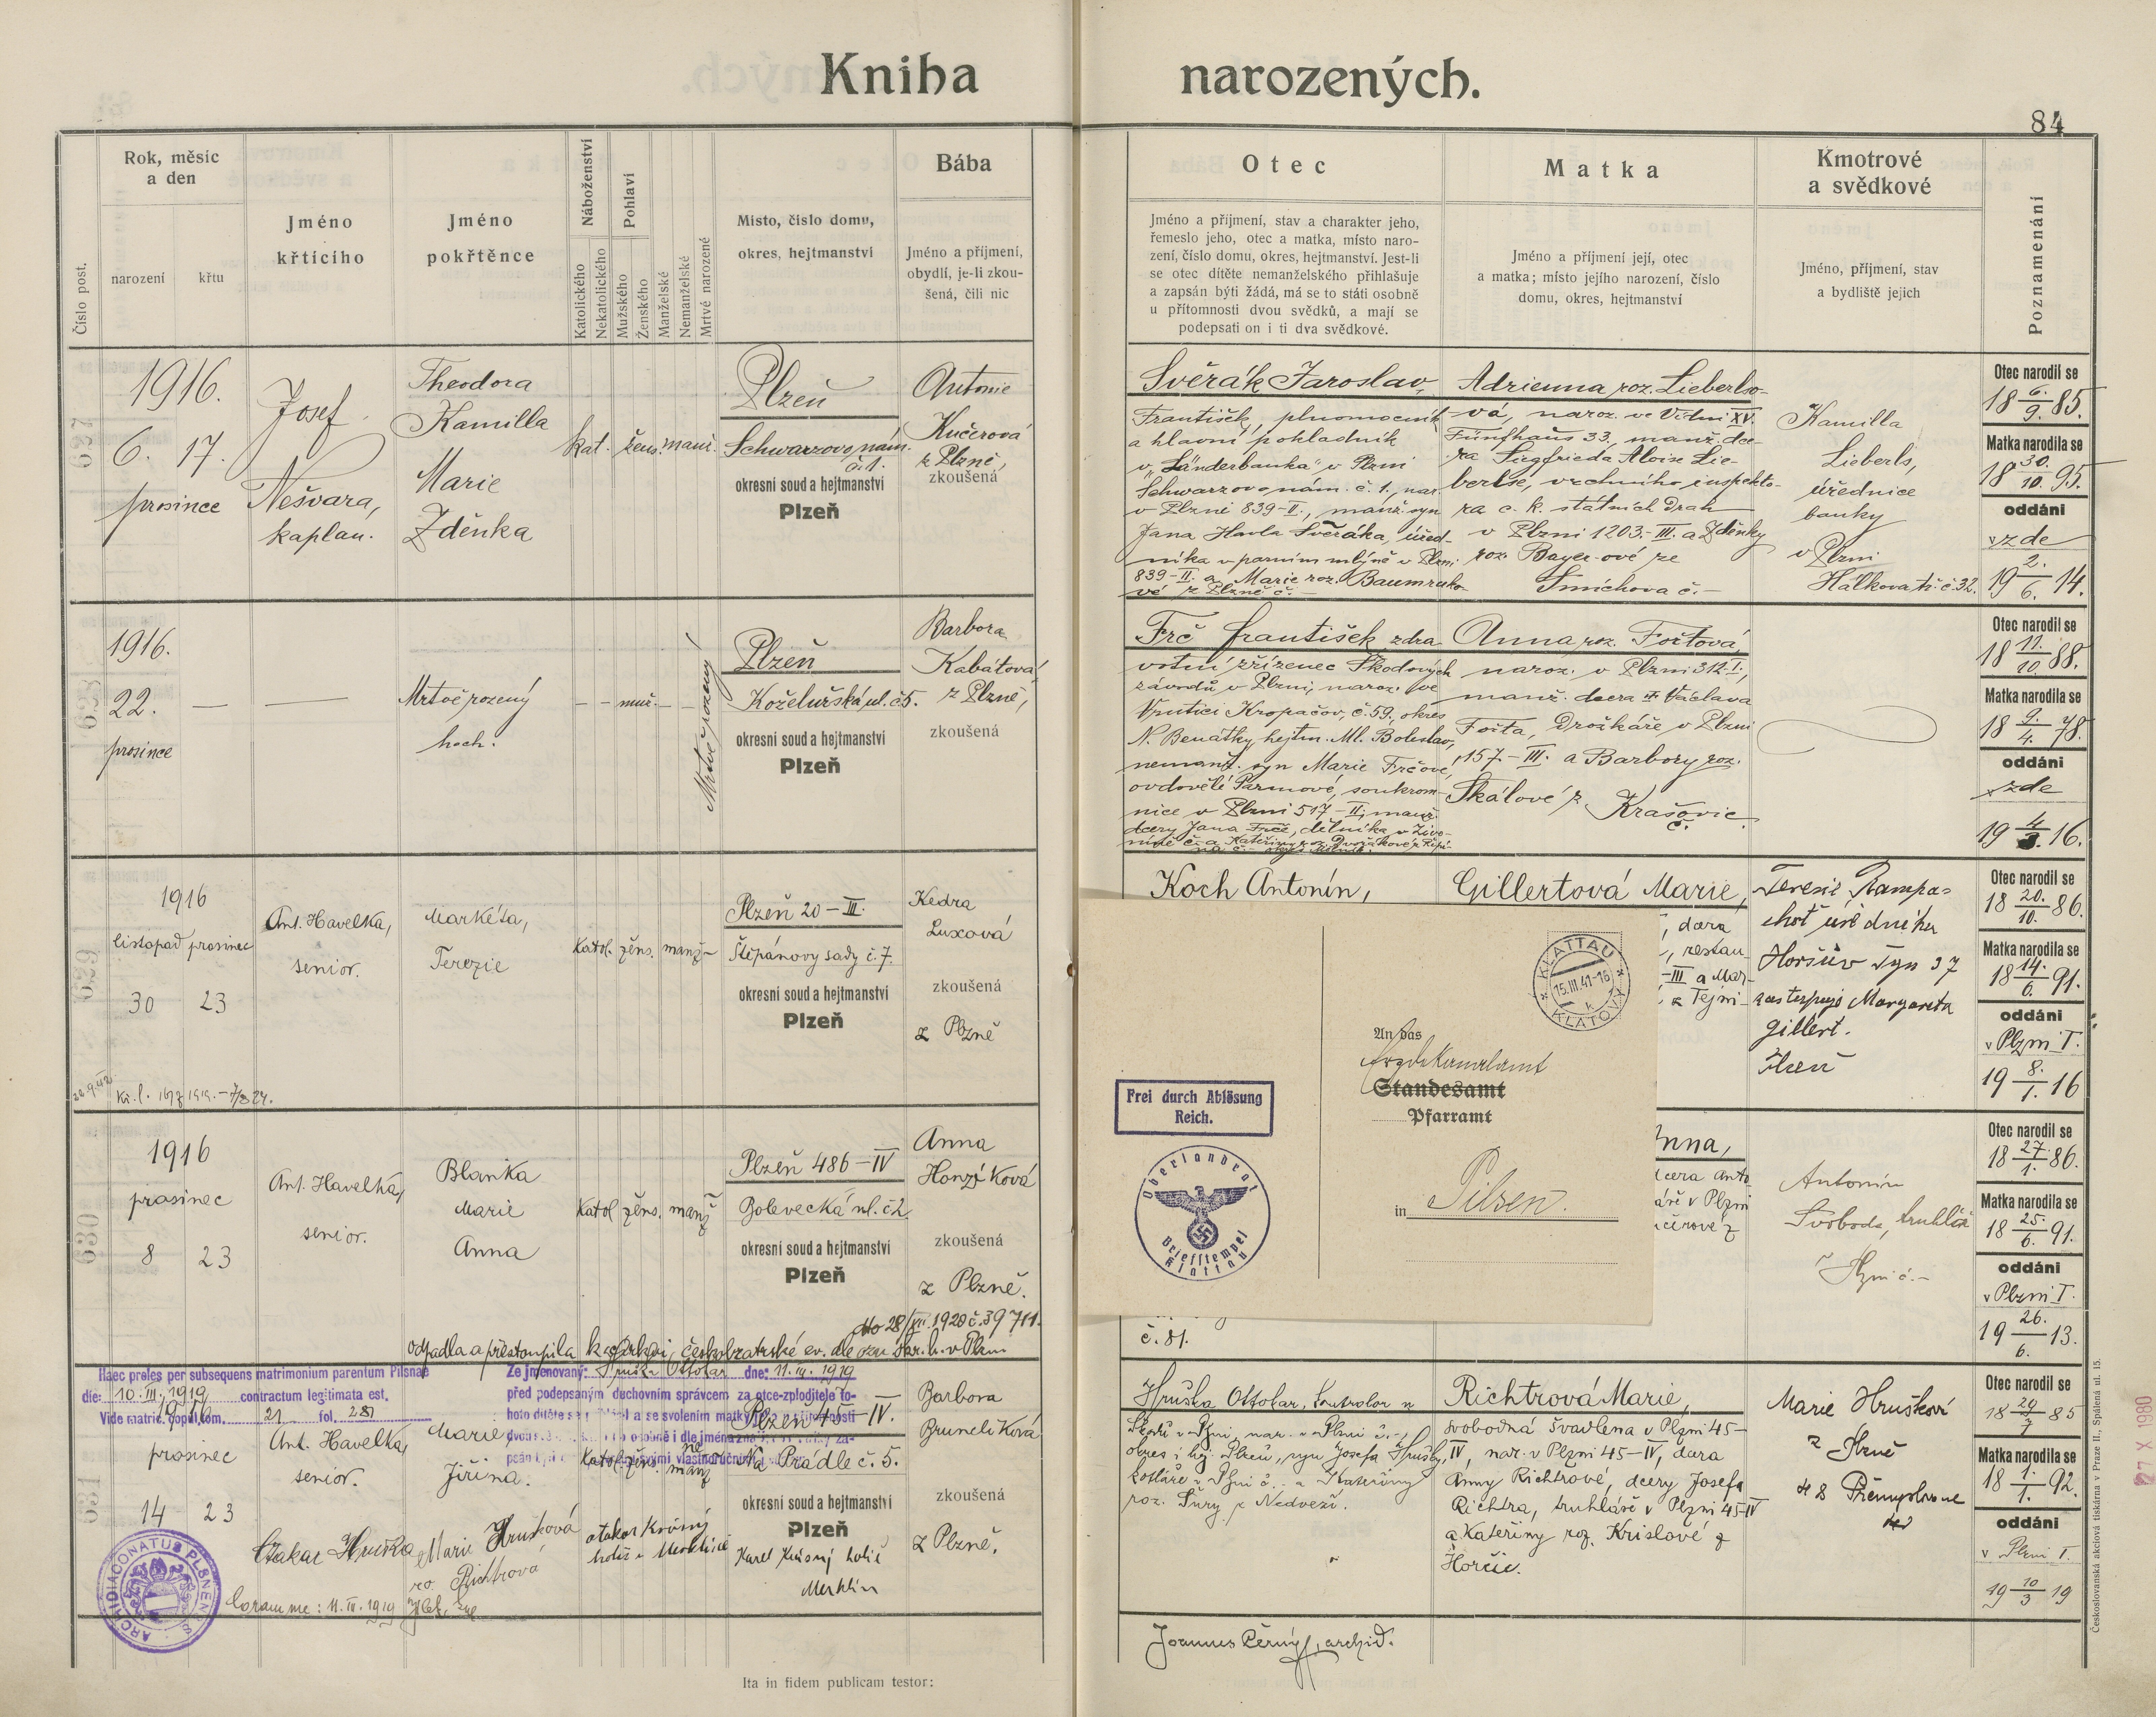 Kniha narozených.
84
Číslo post.
Rok, měsíc
a den
narození
křtu
Jméno
křtícího
Jméno
pokřtěnce
Náboženství
Katolického
Nekatolického
Pohlaví
Mužského
Ženského
Manželské
Nemanželské
Mrtvé narozené
Místo, číslo domu,
okres, hejtmanství
Bába
Jméno a příjmení,
obydlí, je-li zkou-
šená, čili nic
Otec
Jméno a příjmení, stav a charakter jeho,
řemeslo jeho, otec a matka, místo naro-
zení, číslo domu, okres, hejtmanství. Jest-li
se otec dítěte nemanželského přihlašuje
a zapsán býti žádá, má se to státi osobně
u přítomnosti dvou svědků, a mají se
podepsati on i ti dva svědkové.
Matka
Jméno a příjmení její, otec
a matka; místo jejího narození, číslo
domu, okres, hejtmanství
Kmotrové
a svědkové
Jméno, příjmení, stav
a bydliště jejich
Poznamenání
627
1916.
6. 17.
prosince
Josef
Nešvara,
kaplan.
Theodora
Kamilla
Marie
Zdeňka
kat. žens. manž.
Plzeň
Schwarzovo nám.
č. 1.
okresní soud a hejtmanství
Plzeň
Antonie
Kučerová
z Plzně,
zkoušená
Svěrák Jaroslav,
František, plnomocník
a hlavní pokladník
v „Länderbanka" v Plzni
Schwarzovo nám. č. 1., nar.
v Plzni 839-II., manž. syn
Jana Havla Svěráka, úřed-
níka v parním mlýně v Plzni
839-II. a Marie roz. Baumruko-
vé z Plzně č. —
Adrienna roz. Lieberlso-
vá, naroz. ve Vídni XV.
Fünfhaus 33., manž. dce-
ra Siegfrieda Aloise Lie-
berlse, vrchního inspekto-
ra c. k. státních drah
v Plzni 1203.-III. a Zdeňky
roz. Bayer-ové ze
Smíchova č. —
Kamilla
Lieberls,
úřednice
banky
v Plzni
Hálkova tř. č. 32.
Otec narodil se
18 6./9. 85.
Matka narodila se
18 30./10. 95.
oddáni
v zde
19 2./6. 14.
628
1916.
22. — —
prosince
Mrtvě rozený
hoch.
— — muž. — —
Mrtvě rozený
Plzeň
Koželužská ul. č 5.
okresní soud a hejtmanství
Plzeň
Barbora
Kabátová,
z Plzně,
zkoušená
Frč František, zdra-
votní zřízenec Škodových
závodů v Plzni, naroz. ve
Vrutici Kropáčov, č. 59., okres
N. Benátky hejtm. Ml. Boleslav,
nemanž. syn Marie Frčové,
ovdovělé Parmové, soukrom-
nice v Plzni 517-II., manž.
dcery Jana Frče, dělníka v Živo-
Anna roz. Foštová,
naroz. v Plzni 312-I.,
manž. dcera Václava
Fošta, Drožkáře v Plzni
157.-III. a Barbory roz.
Škálové z Krašovic
č.
Otec narodil se
18 11./10. 88.
Matka narodila se
18 9./4. 78.
oddáni
v zde
19 4/3. 16.
629
1916
listopad prosinec
30 23
Ant. Havelka,
senior.
Markéta,
Terezie
Katol. žens. manž-
Plzeň 20-III.
Štěpánovy sady č. 7.
okresní soud a hejtmanství
Plzeň
Kedra
Luxová
zkoušená
z Plzně
Koch Antonín,
Gillertová Marie,
, dcera
, restau-
-III a Mar-
z Tejni-
Terezie Rampa-
choť úředníka
Horšův Týn 37
zastupuje Margareta
Gillert.
Plzeň
Otec narodil se
18 20./10. 86.
Matka narodila se
18 14./6. 91.
oddáni
v Plzni I.
19 8./1. 16
An das
Standesamt
Pfarramt
in Pilsen.
KLATTAU
15.III.41-16
KLATOVY
Frei durch Ablösung
Reich.
Oberlandrat
Briefstempel
Klattau
630
1916
prosinec
8 23
Ant. Havelka,
senior.
Blanka
Marie
Anna
Katol žens. manž
Plzeň 486-IV
Bolevecká ul. č 2.
okresní soud a hejtmanství
Plzeň
Anna
Honzíková
zkoušená
z Plzně.
dto 28/XII. 1920 č. 39711.
odpadla a přestoupila k církvi českobratrské ev. dle ozn.
č. 81.
nna,
dcera Anto-
áře v Plzni
Antonín
Svoboda, truhlář
v Plzni č. —
Otec narodil se
18 27./1. 86.
Matka narodila se
18 25./6. 91.
oddáni
v Plzni I.
19 26./6. 13.
631
Haec proles per subsequens matrimonium parentum Pilsnae
die: 10. III. 1919 contractum legitimata est.
Vide matric. copul. tom. 21 fol. 281
Ze jmenovaný: Hruška Ottokar dne: 11. III. 1919
před podepsaným duchovním správcem za otce-zploditele to-
1916
prosinec
14 23
Ant. Havelka,
senior.
Marie
Jiřina.
Katol. žens. nemanž
Plzeň 45-IV.
Na Prádle č. 5.
okresní soud a hejtmanství
Plzeň
Barbora
Brunclíková
zkoušená
z Plzně.
Otakar Hruška
Marie Hrušková
roz. Richtrová
Otakar Krásný
holič v Merklíně
Karel Krásný holič
Merklín
Coram me: 11. III. 1919
ARCHIDIACONATUS PLSNENSIS
Hruška Ottokar, kontrolor u
Škodů v Plzni, nar. v Plzni č. -,
okres i hej. Plzeň, syn Josefa Hrušky,
kotláře v Plzni č. - a Kateřiny
roz. Šůry z Nedveží.
Richtrová Marie,
svobodná švadlena v Plzni 45-
IV, nar. v Plzni 45-IV, dcera
Anny Richtrové, dcery Josefa
Richtra, truhláře v Plzni 45-IV
a Kateřiny roz. Krislové z
Horšic.
Marie Hrušková
z Plzně
Otec narodil se
18 29/7 85
Matka narodila se
18 1./1. 92.
oddáni
v Plzni I.
19 10/3 19
Joannes Černý, archid.
Ita in fidem publicam testor:
Československá akciová tiskárna v Praze II., Spálená ul. 15.
27 X 1980